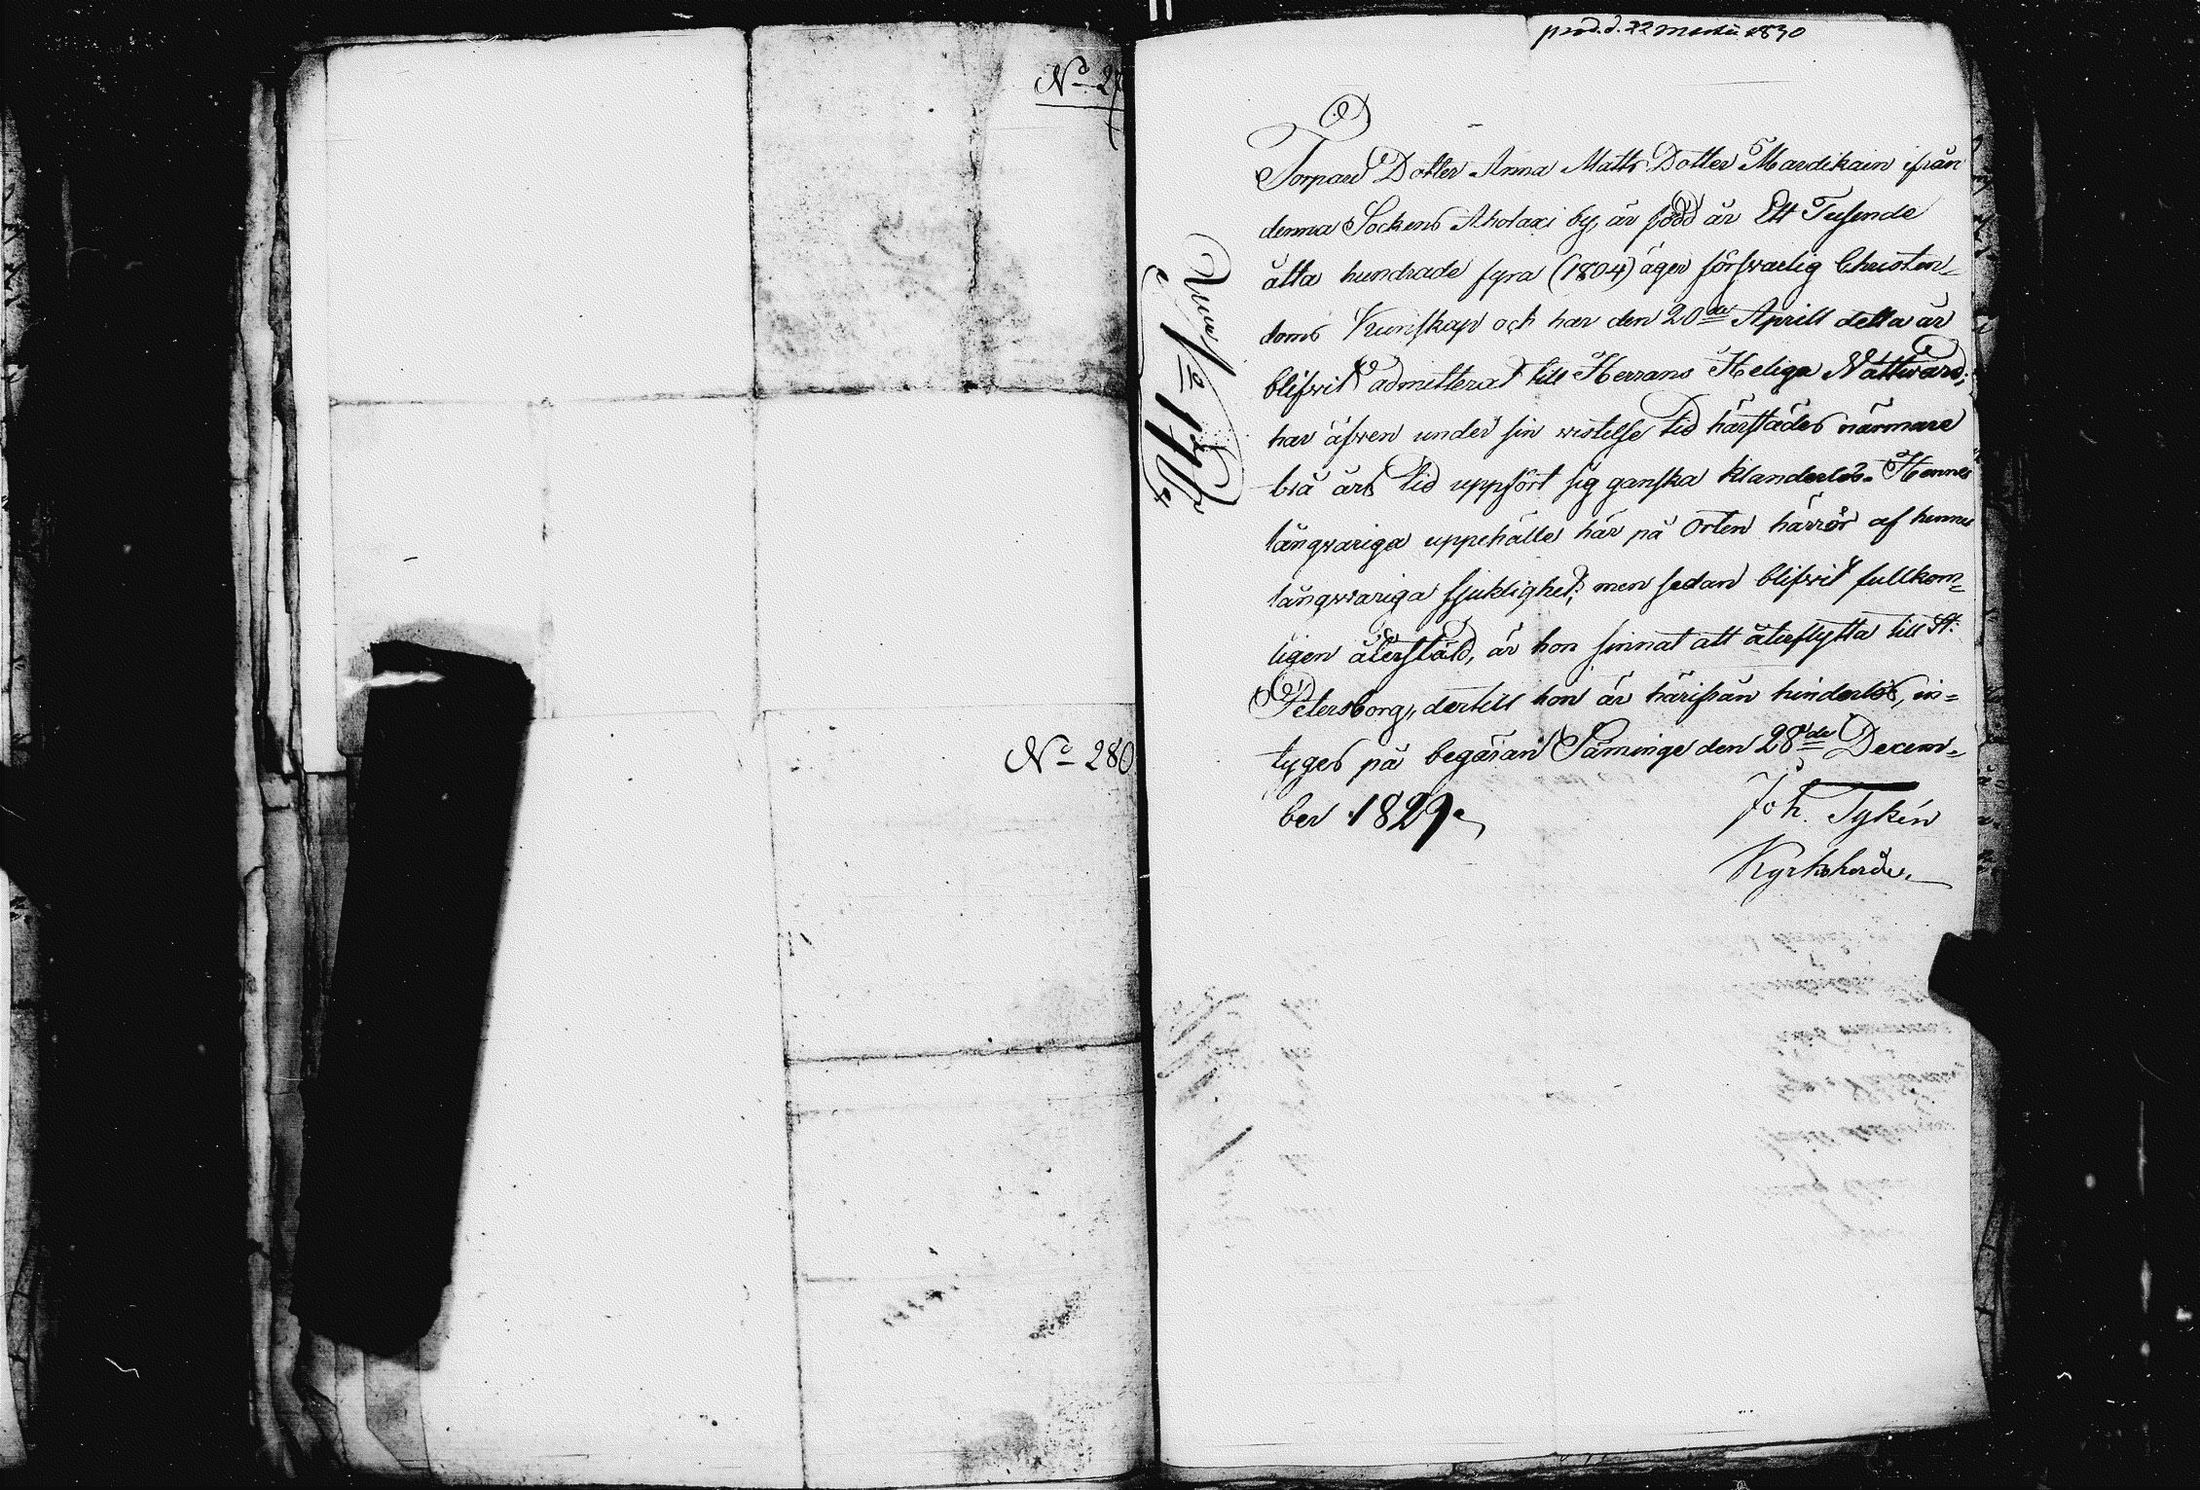 Nº 280
prod. d. 22 Martii 1830
Torpare Dotter Anna Matts Dotter Mardikain ifrån
denna Sockens Aholaxi by, är född år Ett Tusende
åtta hundrade fyra (1804) äger försvarlig Christen=
doms Kunskap och har den 20de Aprill detta år
blifvit admitterad till Herrans Heliga Nattward;
har äfven under sin vistelse tid härstädes närmare
två års tid uppfört sig ganska klanderlös. Hennes
långvariga uppehälle här på Orten härrör af hennes
långvariga sjuklighet; men sedan blifvit fullkom=
ligen återstäld, är hon sinnat att återflytta till St:
Petersborg, dertill hon är härifrån hinderlös, in=
tyges på begäran Säminge den 28de Decem=
ber 1829.
Joh. Tykén
Kyrkoherde.